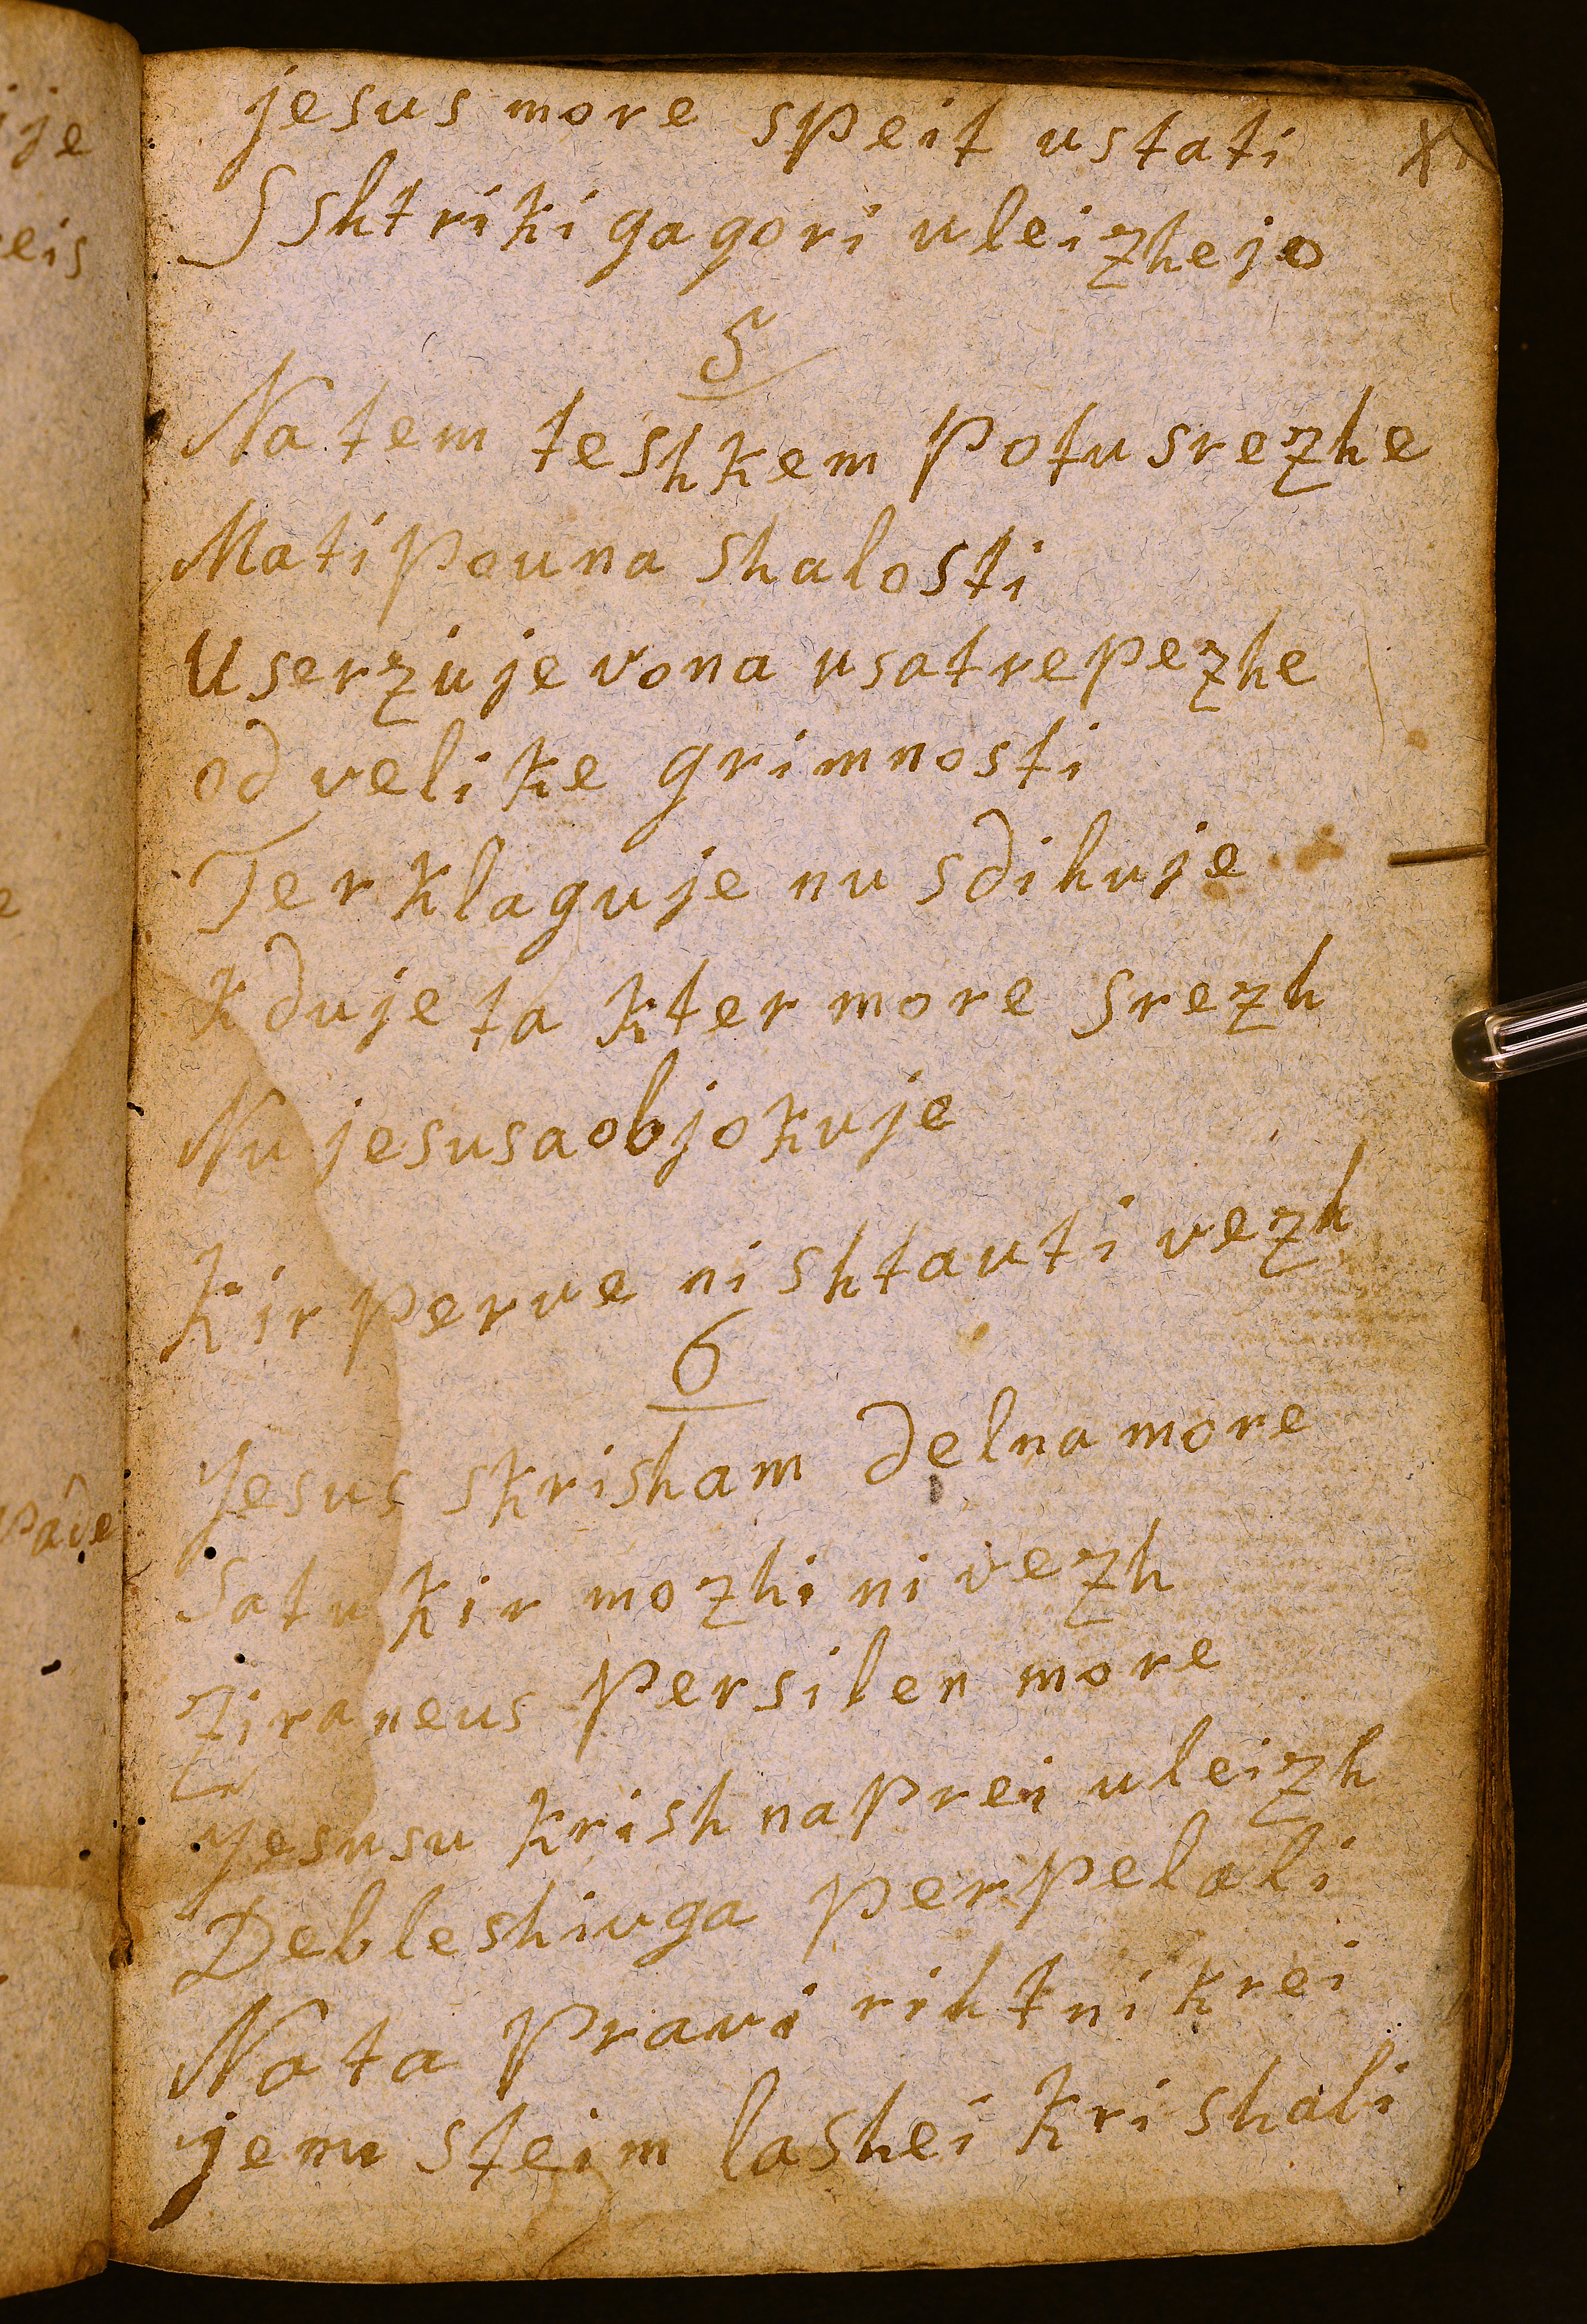 jesus more speit ustati
S shtriki ga gori uleizhejo
5
Na tem teshkem potu srezhe
Mati pouna shalosti
U serzu je vona usa trepezhe
od velike grimnosti
Ter klaguje nu sdihuje
kduje ta kter more srezh
Nu jesusa objokuje
Kir perve ni shtauti vezh
6
Jesus skrisham delna more
Satu kir mozhi ni vezh
Tiraneus persilen more
Jesusu krish naprei uleizh
De bleshiuga perpelali
Nata pravi rihtni krei
jemu steim lashei krishali